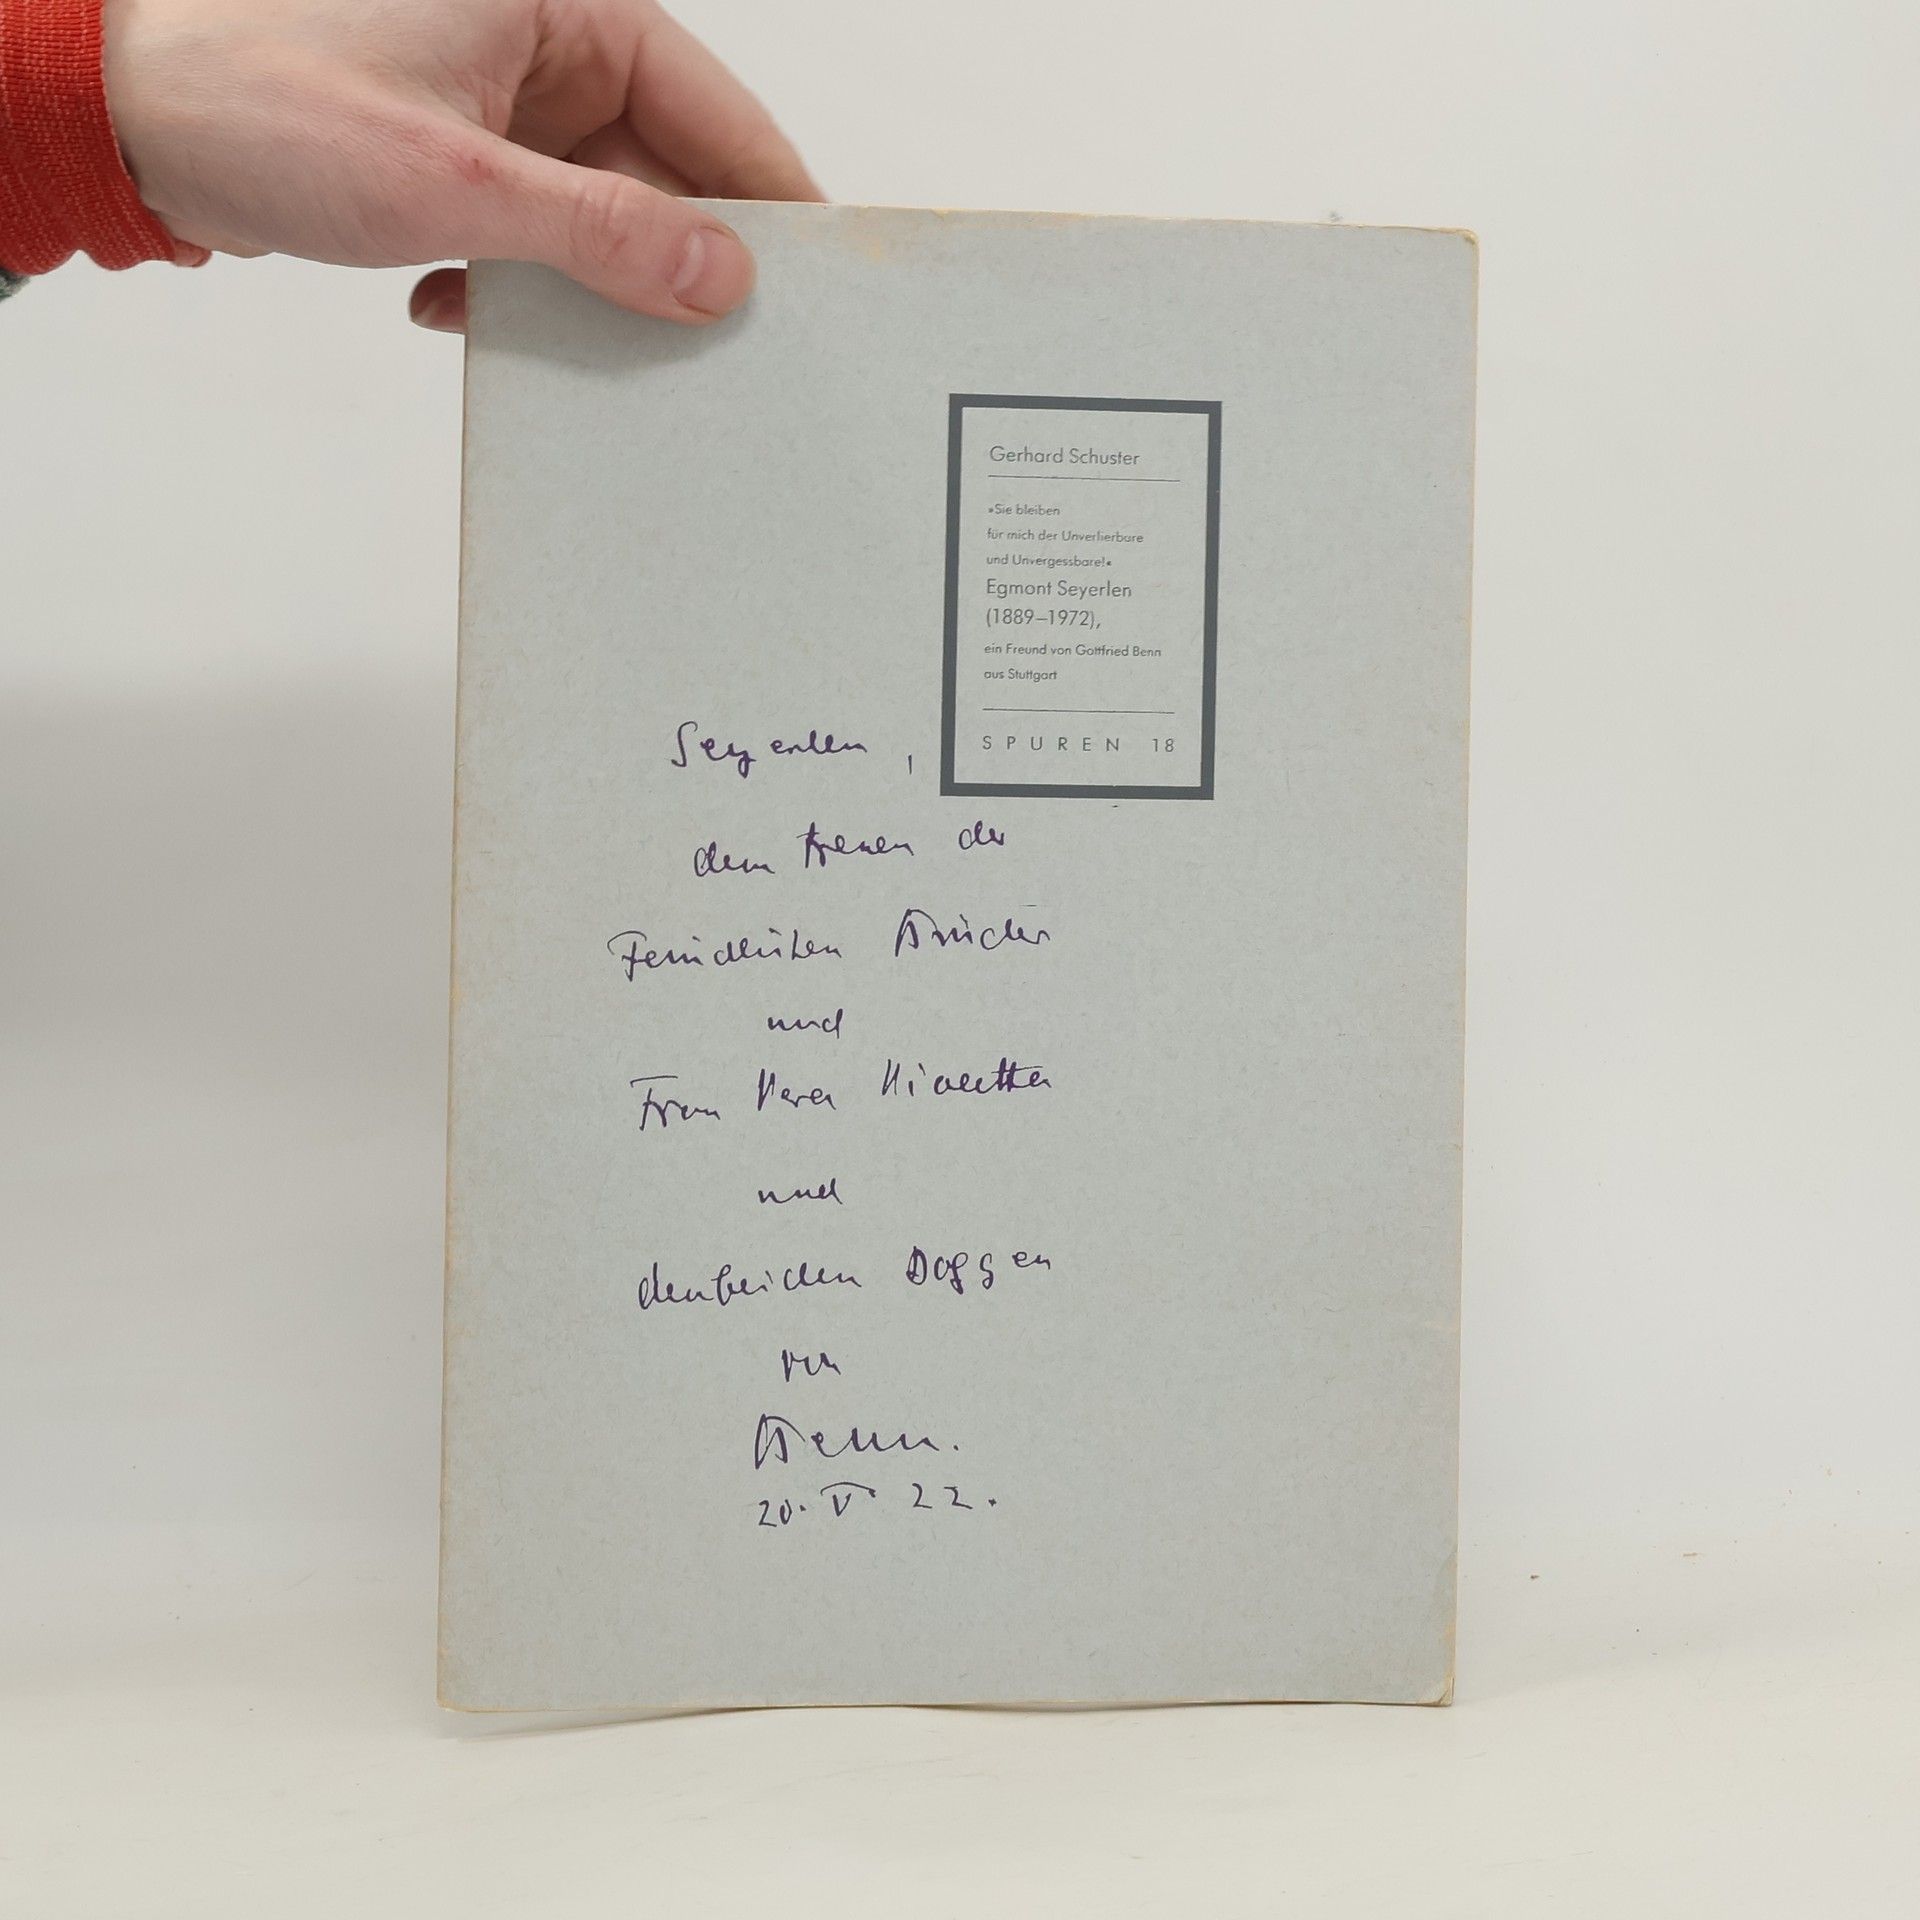 Gerhard Schuster
»Sie bleiben
für mich der Unverlierbare
und Unvergessbare!«
Egmont Seyerlen
(1889–1972),
ein Freund von Gottfried Benn
aus Stuttgart
SPUREN 18
Seyerlen,
dem treuen der
Feindlichen Brüder
und
Frau Vera Violetta
und
den beiden Doggen
von
Benn.
20. V. 22.